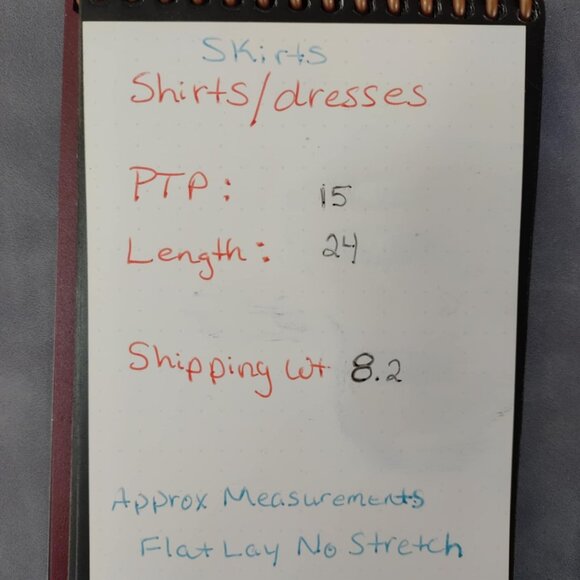 Skirts
Shirts/dresses
PTP: 15
Length: 24
Shipping wt 8.2
Approx Measurements
Flat Lay No Stretch